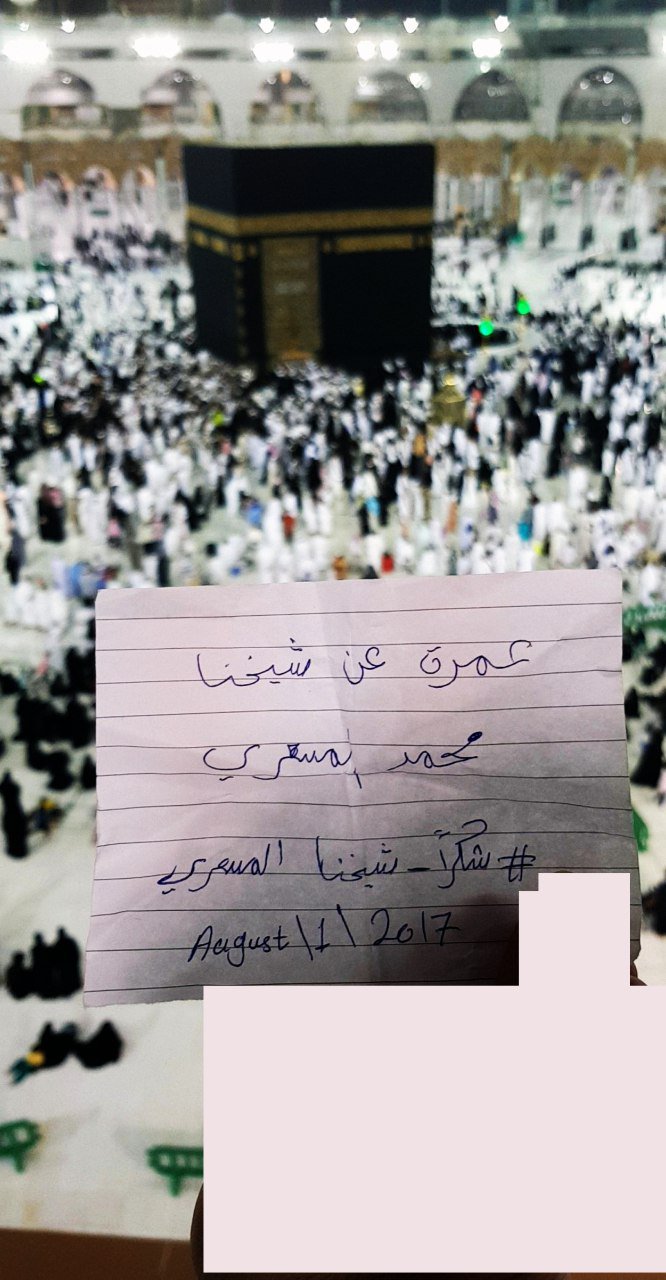 عمرة عن شيخنا
محمد المسعري
#شكراً_شيخنا المسعري
August\1\2017